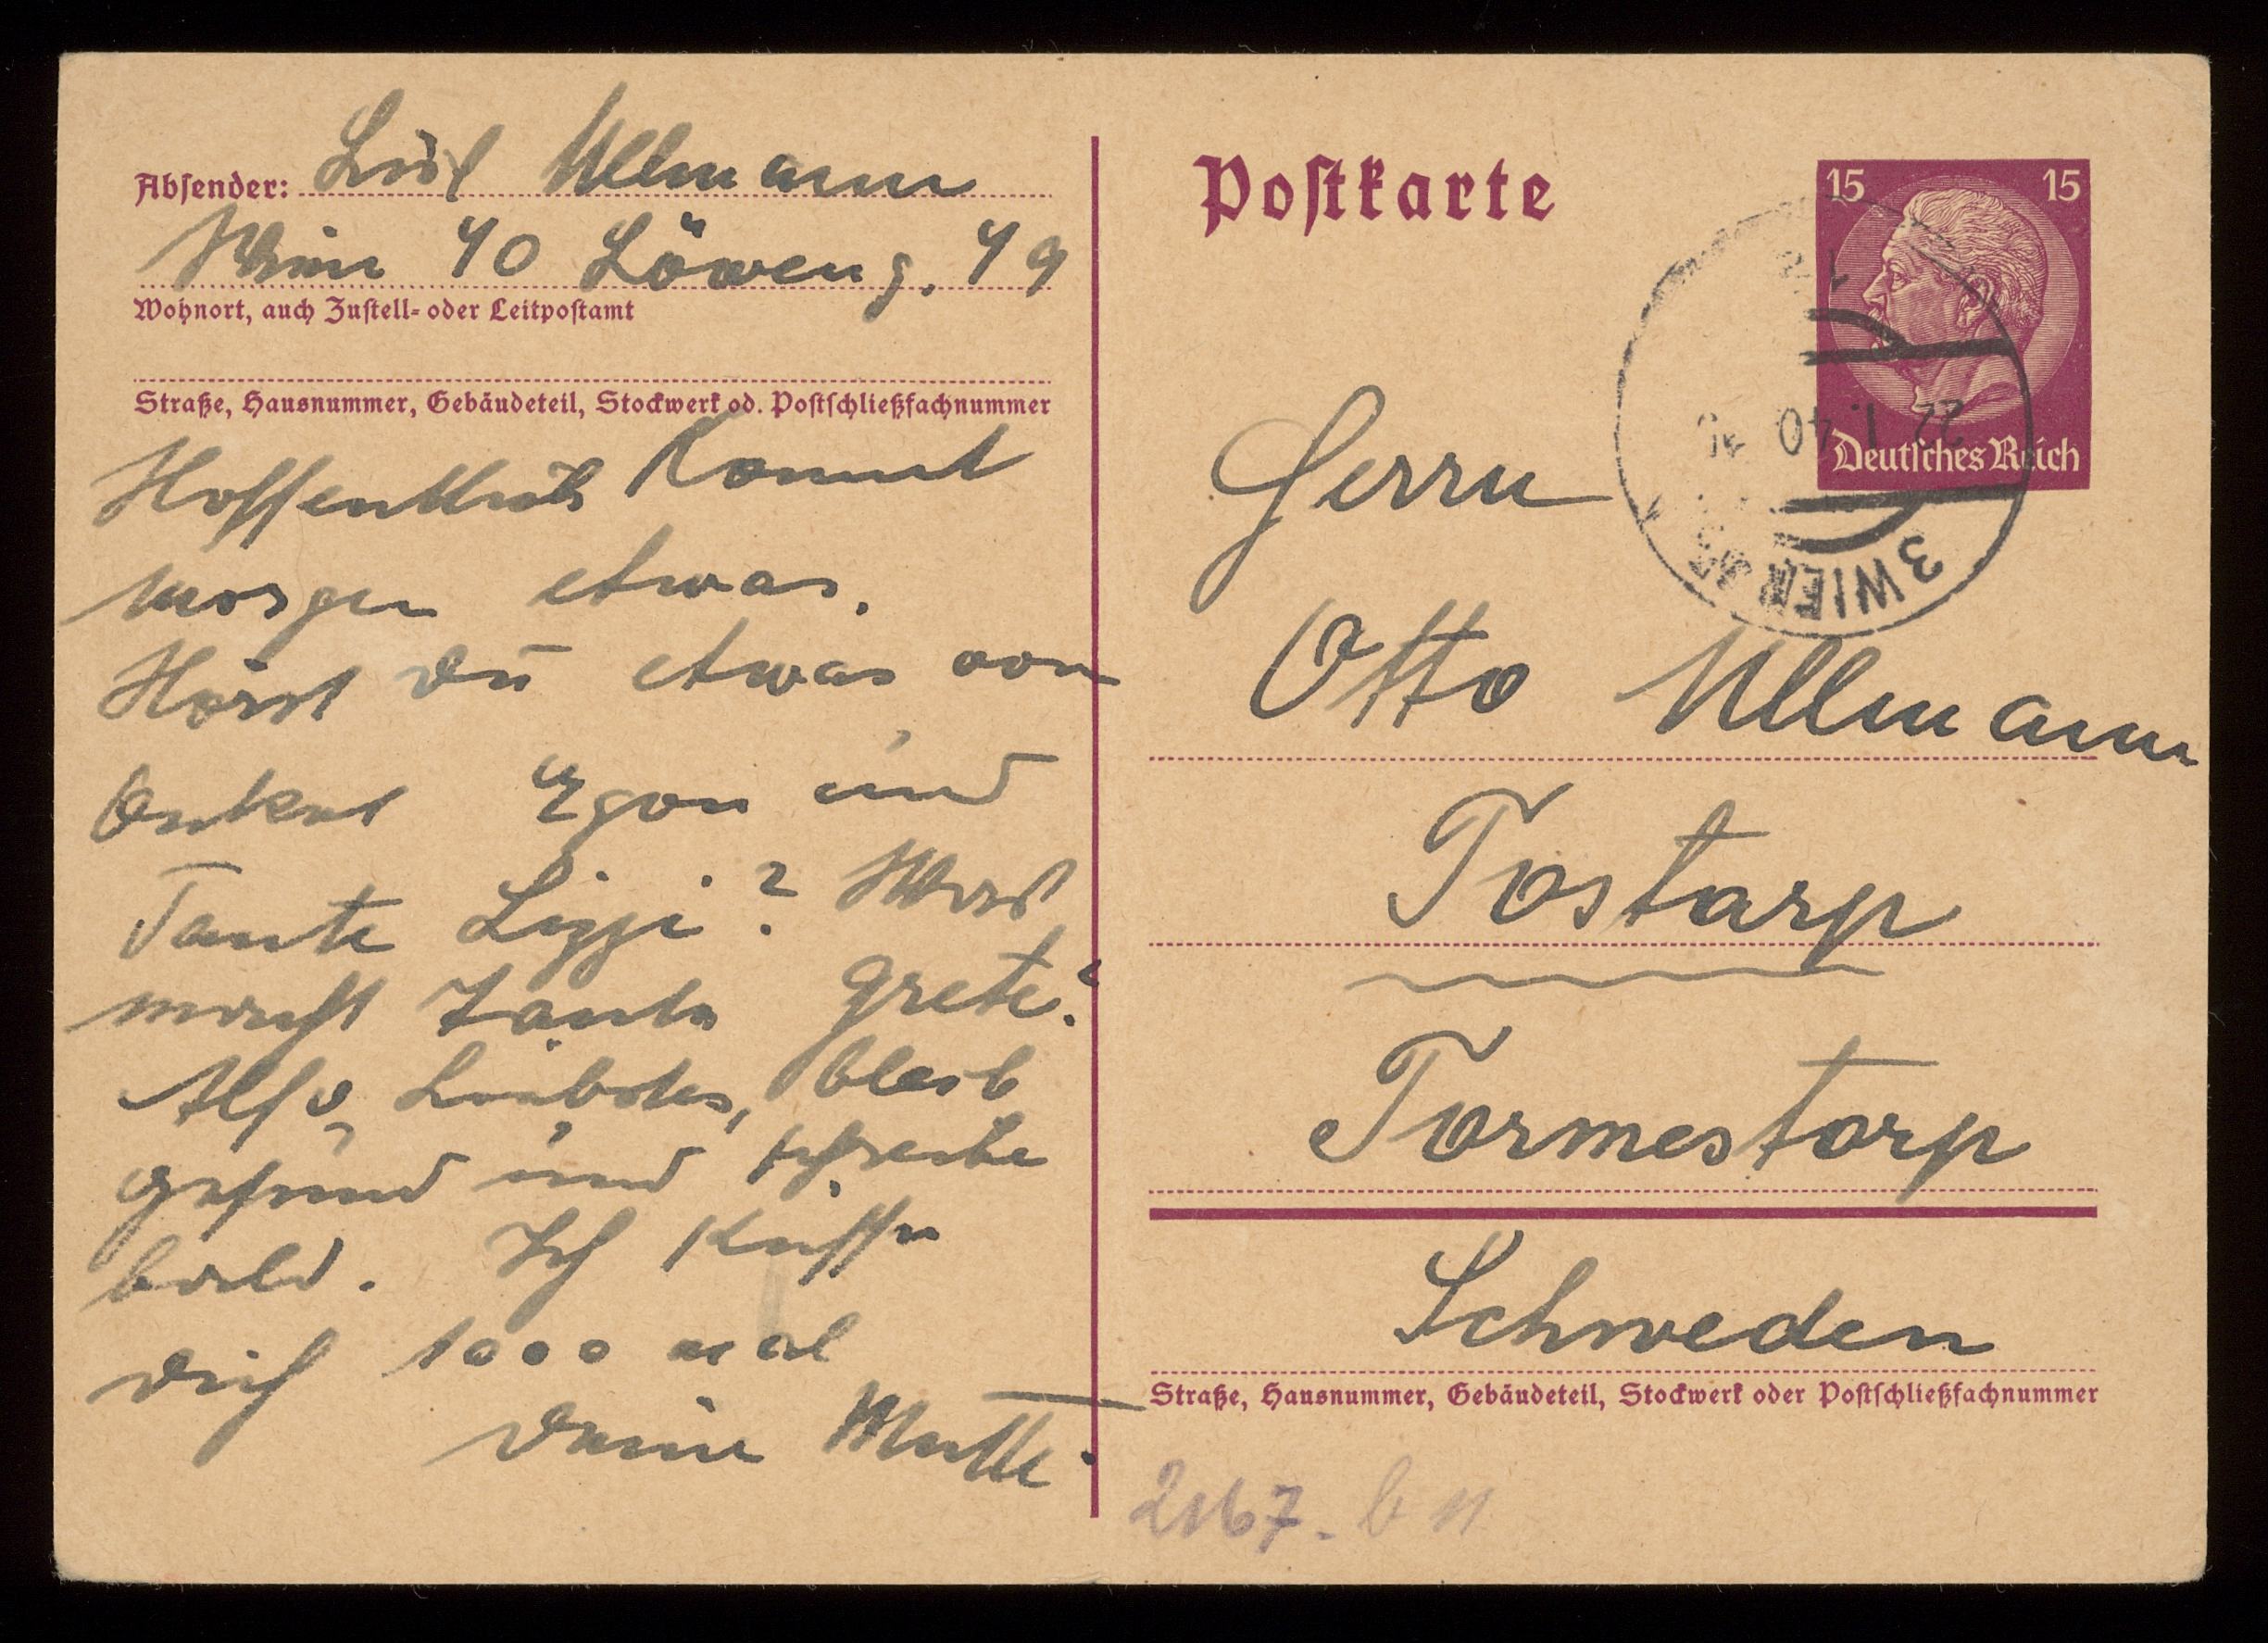 Absender: Lisl Ullmann
Wien 40 Löweng. 49
Wohnort, auch Zustell- oder Leitpostamt
Straße, Hausnummer, Gebäudeteil, Stockwerk od. Postschließfachnummer
Hoffentlich kommt
morgen etwas.
Hörst du etwas von
Onkel Egon und
Tante Lizzi? Was
macht Tante Grete?
Also, Liebstes, bleib
gesund und schreibe
bald. Ich küsse
dich 1000 mal
deine Mutti.
Postkarte
15 15
Deutsches Reich
22.1.40
3 WIEN
Herrn
Otto Ullmann
Tostarp
Tormestorp
Schweden
Straße, Hausnummer, Gebäudeteil, Stockwerk oder Postschließfachnummer
2167.